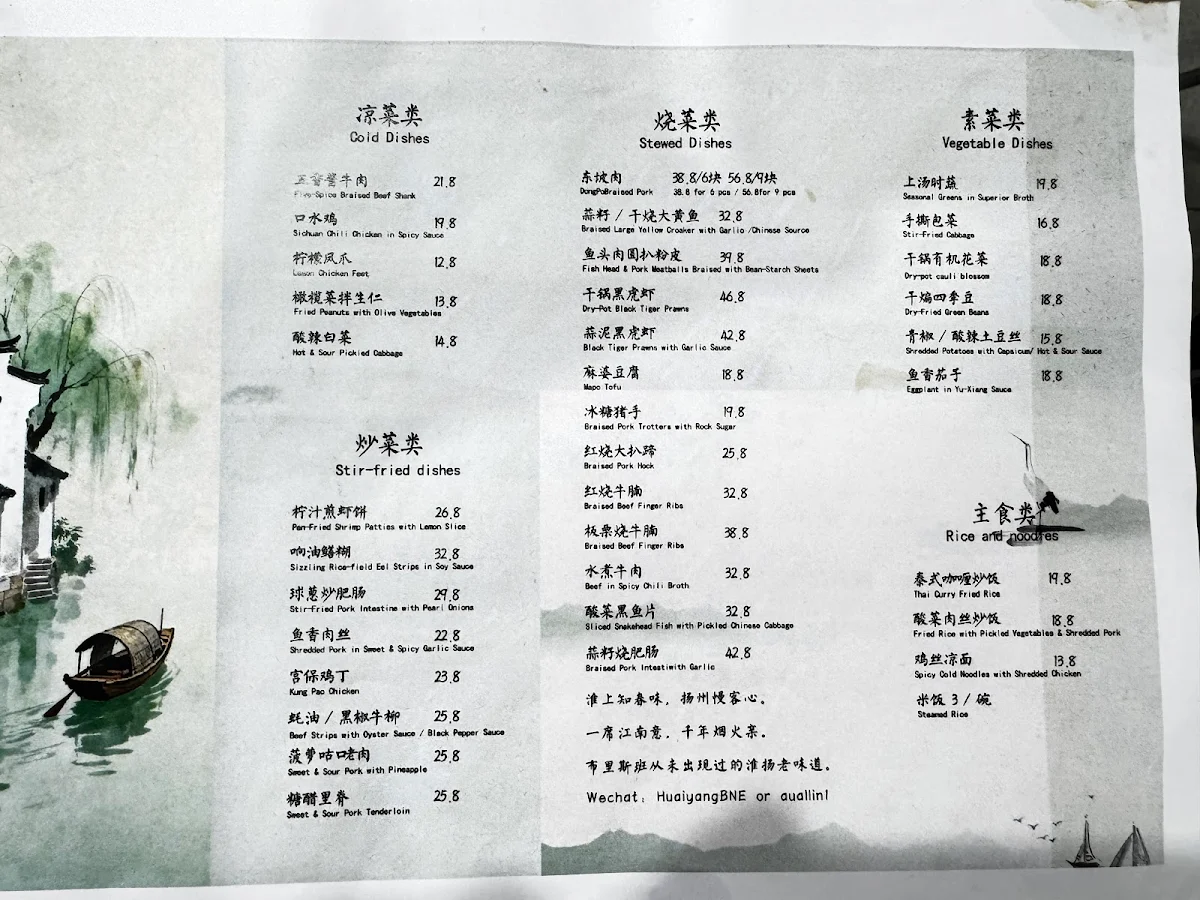 凉菜类
Cold Dishes
五香酱牛肉 21.8
Five-Spice Braised Beef Shank
口水鸡 19.8
Sichuan Chili Chicken in Spicy Sauce
柠檬凤爪 12.8
Lemon Chicken Feet
橄榄菜拌生仁 13.8
Fried Peanuts with Olive Vegetables
酸辣白菜 14.8
Hot & Sour Pickled Cabbage
炒菜类
Stir-fried dishes
柠汁煎虾饼 26.8
Pan-Fried Shrimp Patties with Lemon Slice
响油鳝糊 32.8
Sizzling Rice-field Eel Strips in Soy Sauce
球葱炒肥肠 29.8
Stir-Fried Pork Intestine with Pearl Onions
鱼香肉丝 22.8
Shredded Pork in Sweet & Spicy Garlic Sauce
宫保鸡丁 23.8
Kung Pao Chicken
蚝油 / 黑椒牛柳 25.8
Beef Strips with Oyster Sauce / Black Pepper Sauce
菠萝咕咾肉 25.8
Sweet & Sour Pork with Pineapple
糖醋里脊 25.8
Sweet & Sour Pork Tenderloin
烧菜类
Stewed Dishes
东坡肉 38.8/6块 56.8/9块
DongPoBraised Pork 38.8 for 6 pcs / 56.8for 9 pcs
蒜籽 / 干烧大黄鱼 32.8
Braised Large Yellow Croaker with Garlic /Chinese Source
鱼头肉圆扒粉皮 39.8
Fish Head & Pork Meatballs Braised with Bean-Starch Sheets
干锅黑虎虾 46.8
Dry-Pot Black Tiger Prawns
蒜泥黑虎虾 42.8
Black Tiger Prawns with Garlic Sauce
麻婆豆腐 18.8
Mapo Tofu
冰糖猪手 19.8
Braised Pork Trotters with Rock Sugar
红烧大扒蹄 25.8
Braised Pork Hock
红烧牛腩 32.8
Braised Beef Finger Ribs
板栗烧牛腩 38.8
Braised Beef Finger Ribs
水煮牛肉 32.8
Beef in Spicy Chili Broth
酸菜黑鱼片 32.8
Sliced Snakehead Fish with Pickled Chinese Cabbage
蒜籽烧肥肠 42.8
Braised Pork Intestiwith Garlic
淮上知春味，扬州慢客心。
一席江南意，千年烟火亲。
布里斯班从未出现过的淮扬老味道。
Wechat：HuaiyangBNE or auallinl
素菜类
Vegetable Dishes
上汤时蔬 19.8
Seasonal Greens in Superior Broth
手撕包菜 16.8
Stir-Fried Cabbage
干锅有机花菜 18.8
Dry-pot cauli blossom
干煸四季豆 18.8
Dry-Fried Green Beans
青椒 / 酸辣土豆丝 15.8
Shredded Potatoes with Capsicum/ Hot & Sour Sauce
鱼香茄子 18.8
Eggplant in Yu-Xiang Sauce
主食类
Rice and noodles
泰式咖喱炒饭 19.8
Thai Curry Fried Rice
酸菜肉丝炒饭 18.8
Fried Rice with Pickled Vegetables & Shredded Pork
鸡丝凉面 13.8
Spicy Cold Noodles with Shredded Chicken
米饭 3 / 碗
Steamed Rice